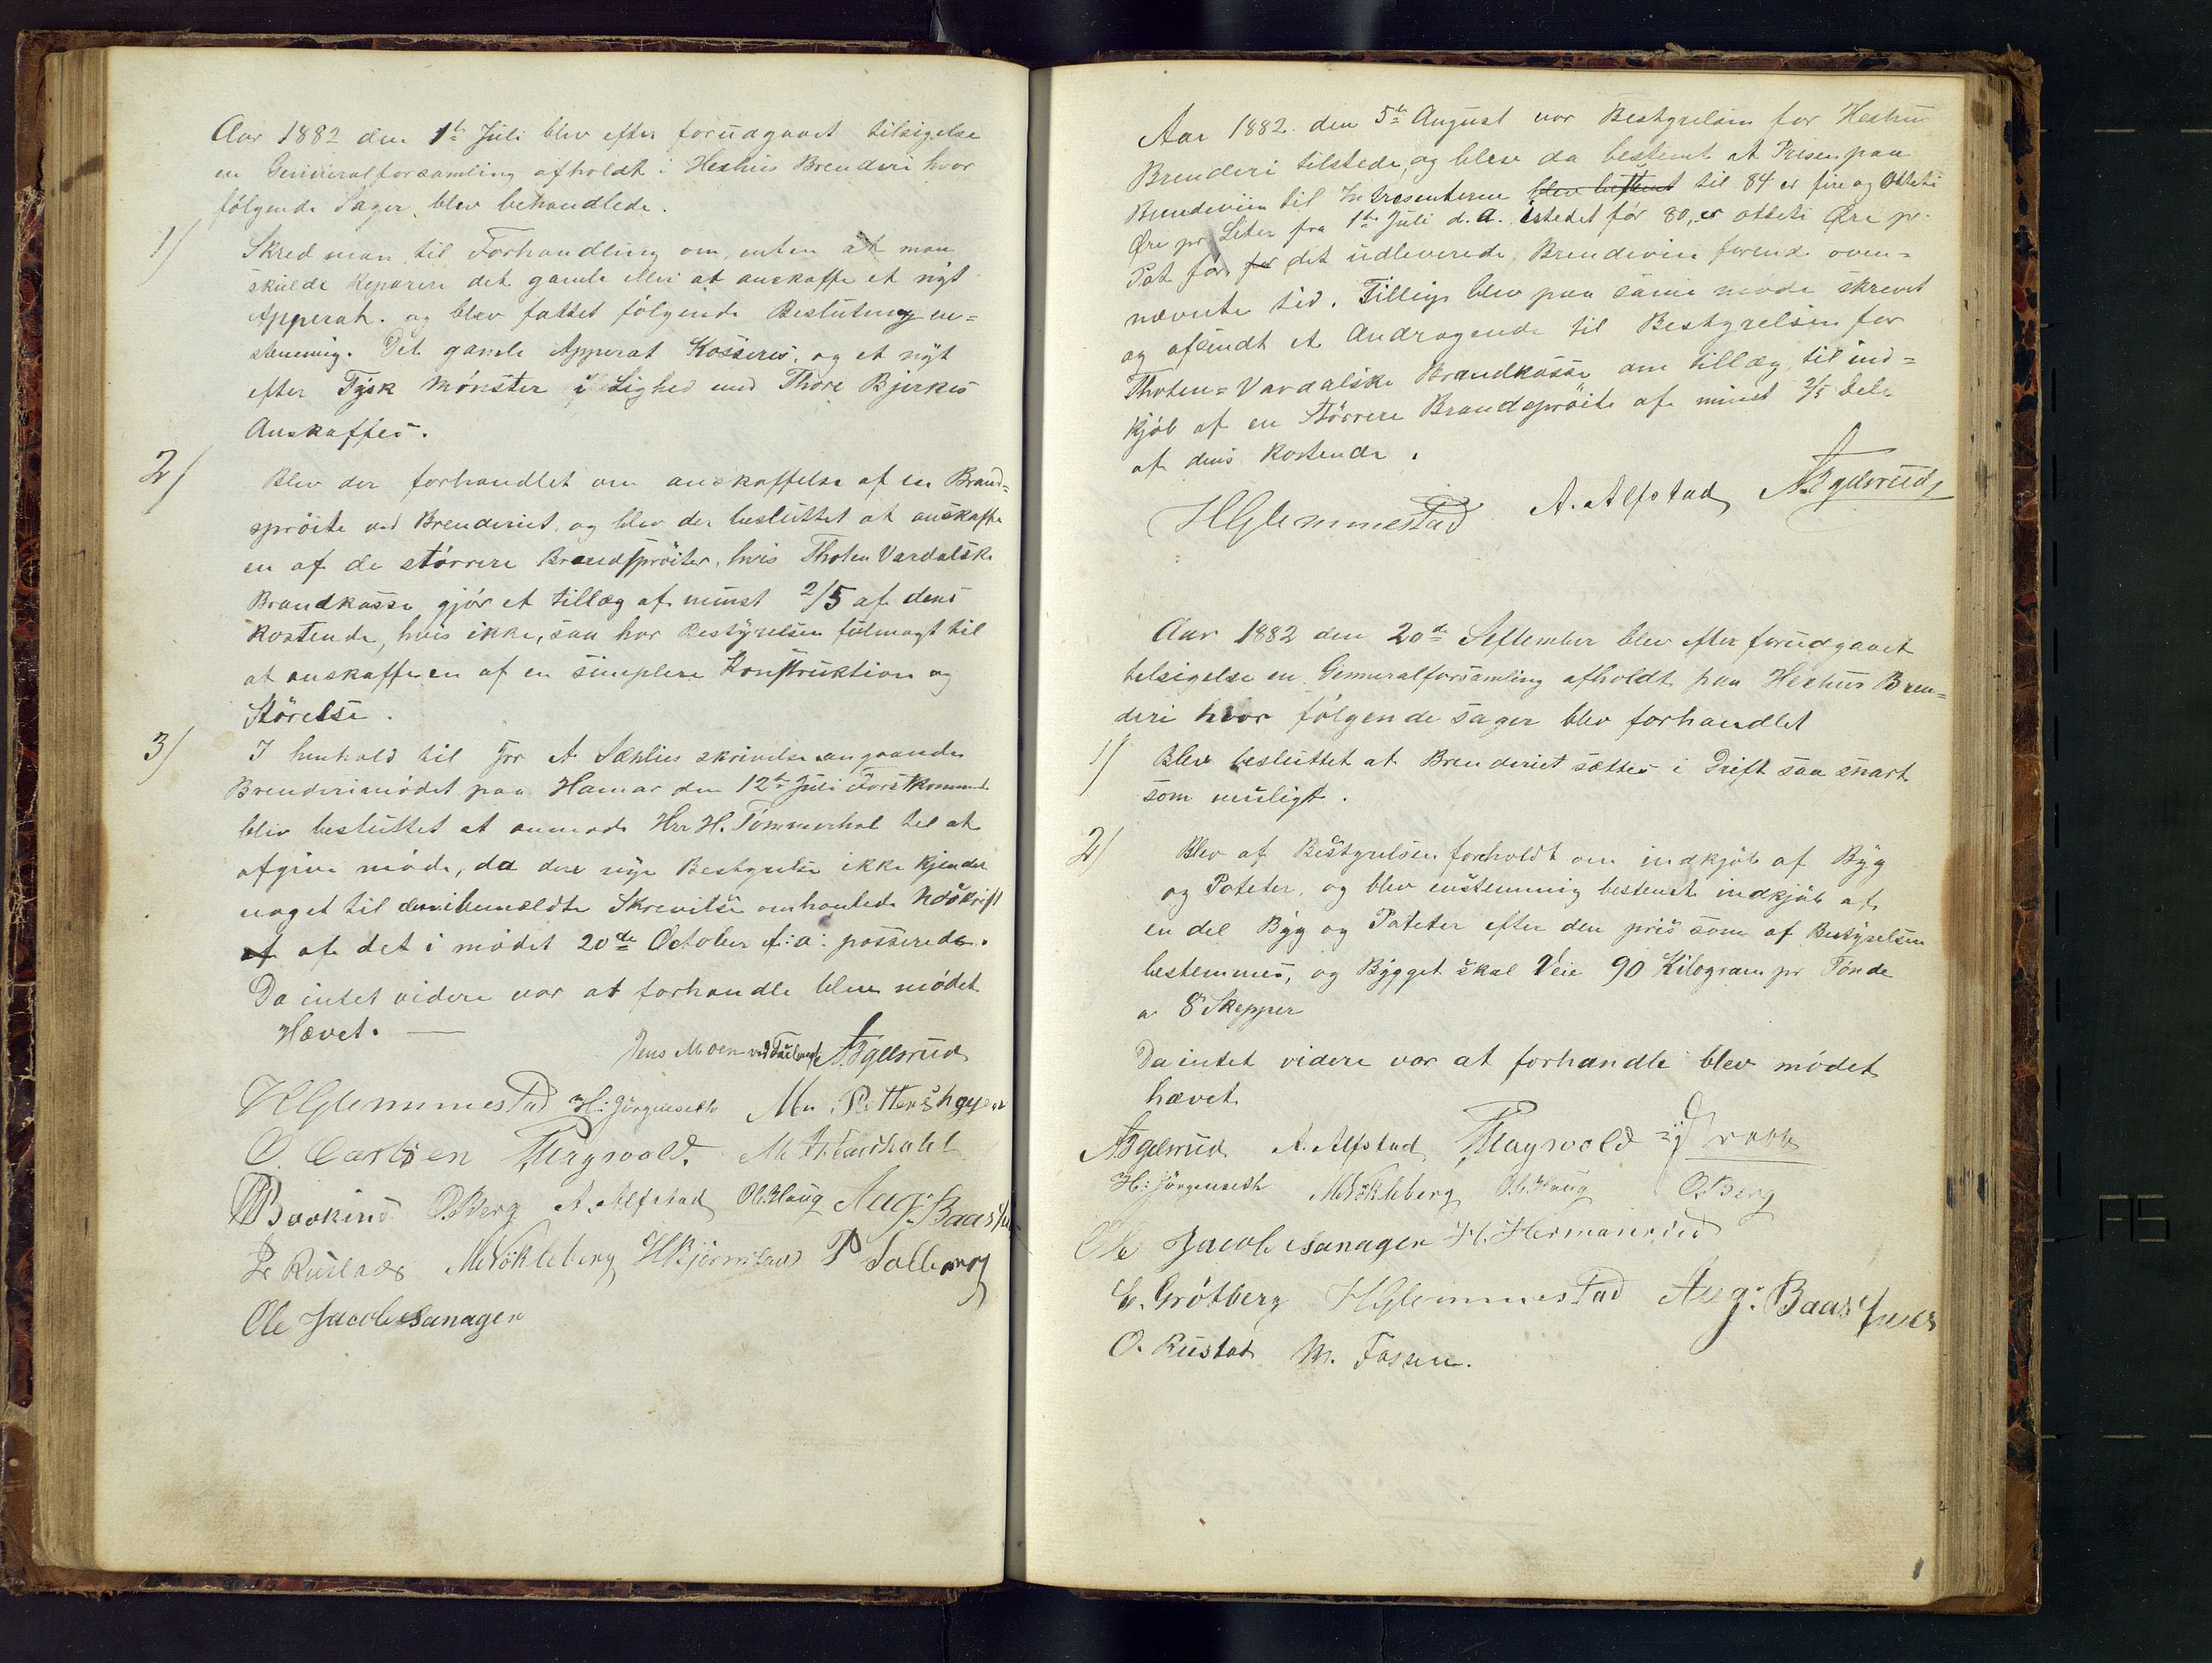 Aar 1882 den 1te Juli blev efter forudgaaet tilsigelse
en Genneralforsamling afholdt i Hexhus Brenderi hvor
følgende Sager blev behandlede.
1) Skred man til Forhandling om, enten at man
skulde Reparere det gamle eller at anskaffe et nyt
Apperat. og blev fattet følgende Beslutning en=
stemmig. Det gamle Apperat Kosseres, og et nyt
efter Tysk Mønster i Lighed med Thore Bjerkes
Anskaffes.
2) Blev der forhandlet om anskaffelse af en Brand=
sprøite ved Brenderiet, og blev der besluttet at anskaffe
en af de større Brandsprøiter, hvis Thoten Vardalske
Brandkasse gjør et tillæg af minst 2/5 af dens
Kostende, hvis ikke, saa har Bestyrelsen fulmagt til
at anskaffe en af en simplere Konstruktion og
Størelse.
3) I henhold til Hrr A Sæhlies skrivelse angaaende
Brenderimødet paa Hamar den 12te Juli Førstkommend
blev besluttet at anmode Hrr H. Tømmerhol til at
afgive møde, da den nye Bestyrelse ikke kjender
noget til den ibemeldte Skrevilse omhantlede Udskrift
af af det i mødet 20de October f: a: passerede.
Da intet videre var at forhandle blev mødet
Hævet. —
Jens Moen AEgelsrud
HGlemmestad H: Jørgenseth Mn. Pettershagen
O. Carlsen
O.Berg A. Alfstad Ol. Haug Aug: Baashus
MNøkleberg HBjørnstad P Solberg
Ole Jacobsanagen
Aar 1882. den 5te August var Bestyrelsen for Hexhus
Brenderi tilstede, og blev da bestemt at Prisen paa
Brendeviin til Intresenterne blev bestemt til 84 er fire og Otteti
Øre pr Liter fra 1te Juli d. A. istedet før 80, er otteti Øre pr.
Pot før for det udleverede Brendevin førend oven=
nevnte tid. Tilligs blev paa same møde skrevet
og afsendt et Andragende til Bestyrelsen for
Thoten=Vardalske Brandkasse om tillæg til ind=
kjøb af en Større Brandsprøite af minst 2/5 Dele
af dens Kostende.
HGlemmestad A. Alfstad AEgelsrud
Aar 1882 den 20de September blev efter forudgaaet
telsigelse en Genneralforsamling afholdt paa Hexhus Bren=
deri hvor følgende sager blev forhandlet
1) Blev besluttet at Brenderiet sættes i Drift saa snart
som muligt.
2) Blev af Bestyrelsen foreholdt om indkjøb af Byg
og Poteter, og blev enstemmig bestemt indkjøb af
en del Byg og Poteter efter den pris som af Bestyrelsen
bestemmes, og Bygget skal Veie 90 Kilogram pr Tønde
a 8 Skepper
Da intet videre var at forhandle blev mødet
hævet.
AEgelsrud A. Alfstad
H: Jørgenseth MNøkleberg Ol. Haug O. Berg
Ole Jacobsanagen H. Hermanrud
C. Grøtberg HGlemmestad Aug: Baashus
O. Rustad M. Fossen.